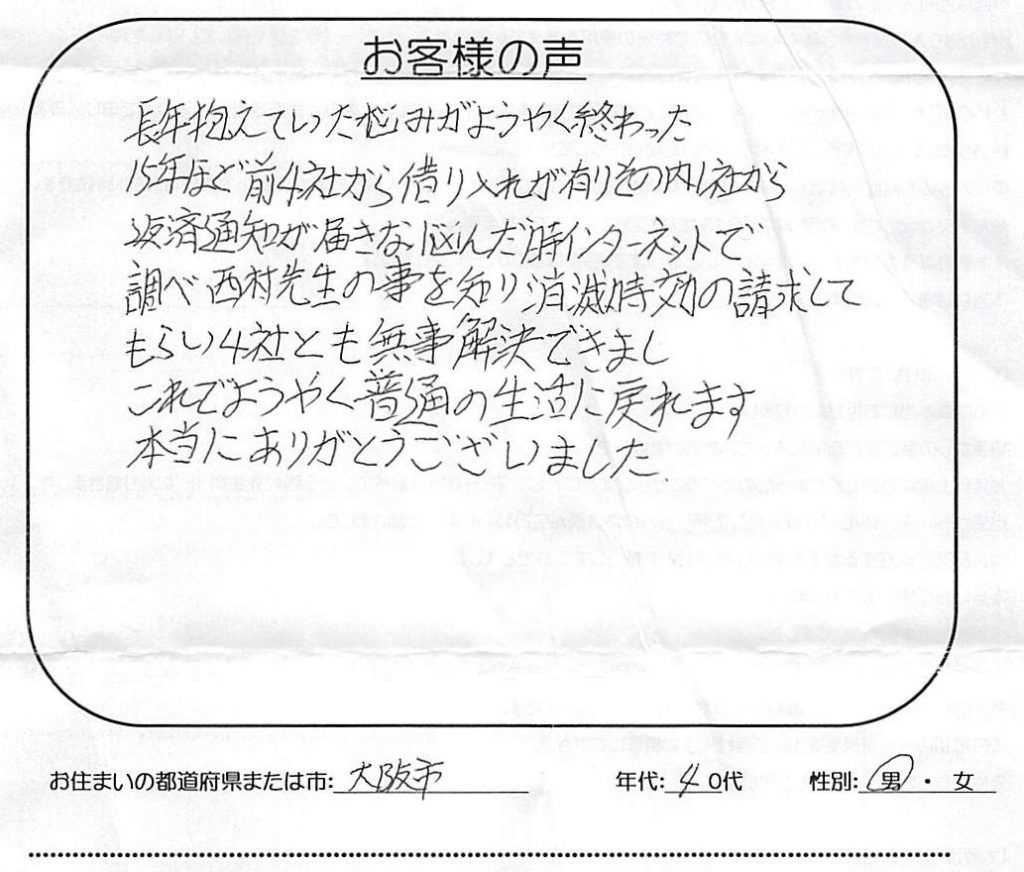 お客様の声
長年抱えていった悩みがようやく終わった
15年ほど前4社から借り入れが有りその内1社から
返済通知が届きな悩んだ時インターネットで
調べ西村先生の事を知り消滅時効の請求して
もらい4社とも無事解決できまし
これでようやく普通の生活に戻れます
本当にありがとうございました
お住まいの都道府県または市: 大阪市 年代: 40代 性別: 男・女